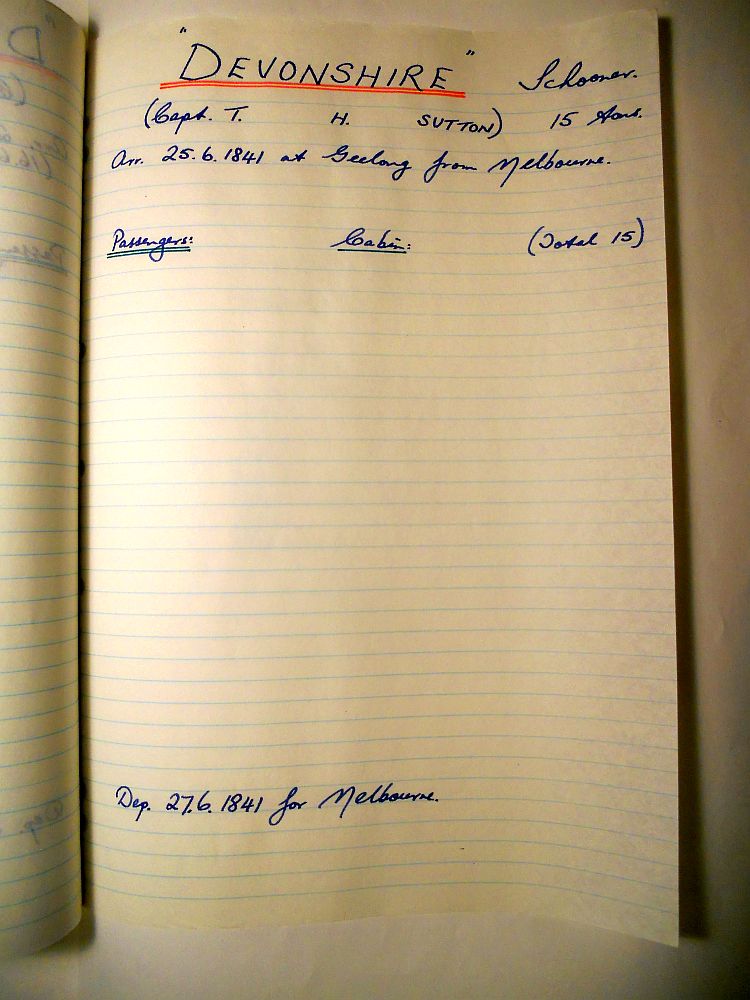 "DEVONSHIRE" Schooner.
(Capt. T. H. SUTTON) 15 tons.
Arr. 25.6.1841 at Geelong from Melbourne.
Passengers: Cabin: (Total 15)
Dep. 27.6.1841 for Melbourne.